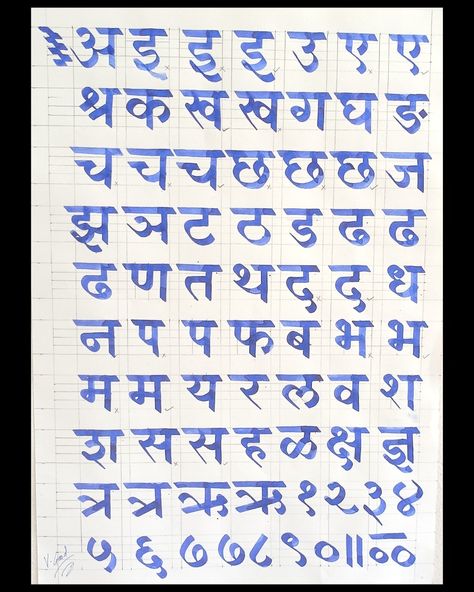 अ इ इ इ उ ए ए
श्र क ख ख ग घ ङ
च च च छ छ छ ज
झ ञ ट ठ ड ढ ढ
ढ ण त थ द द ध
न प प फ ब भ भ
म म य र ल व श
श स स ह ळ क्ष ज्ञ
त्र त्र ऋ ऋ १ २ ३ ४
५ ६ ७ ७ ८ ९ ० ॥ ००